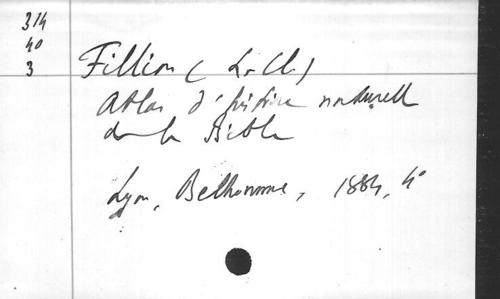 314
40
3
Fillion (L. Cl.)
Atlas d'histoire naturelle
de la Bible
Lyon, Belhomme, 1884, 4°